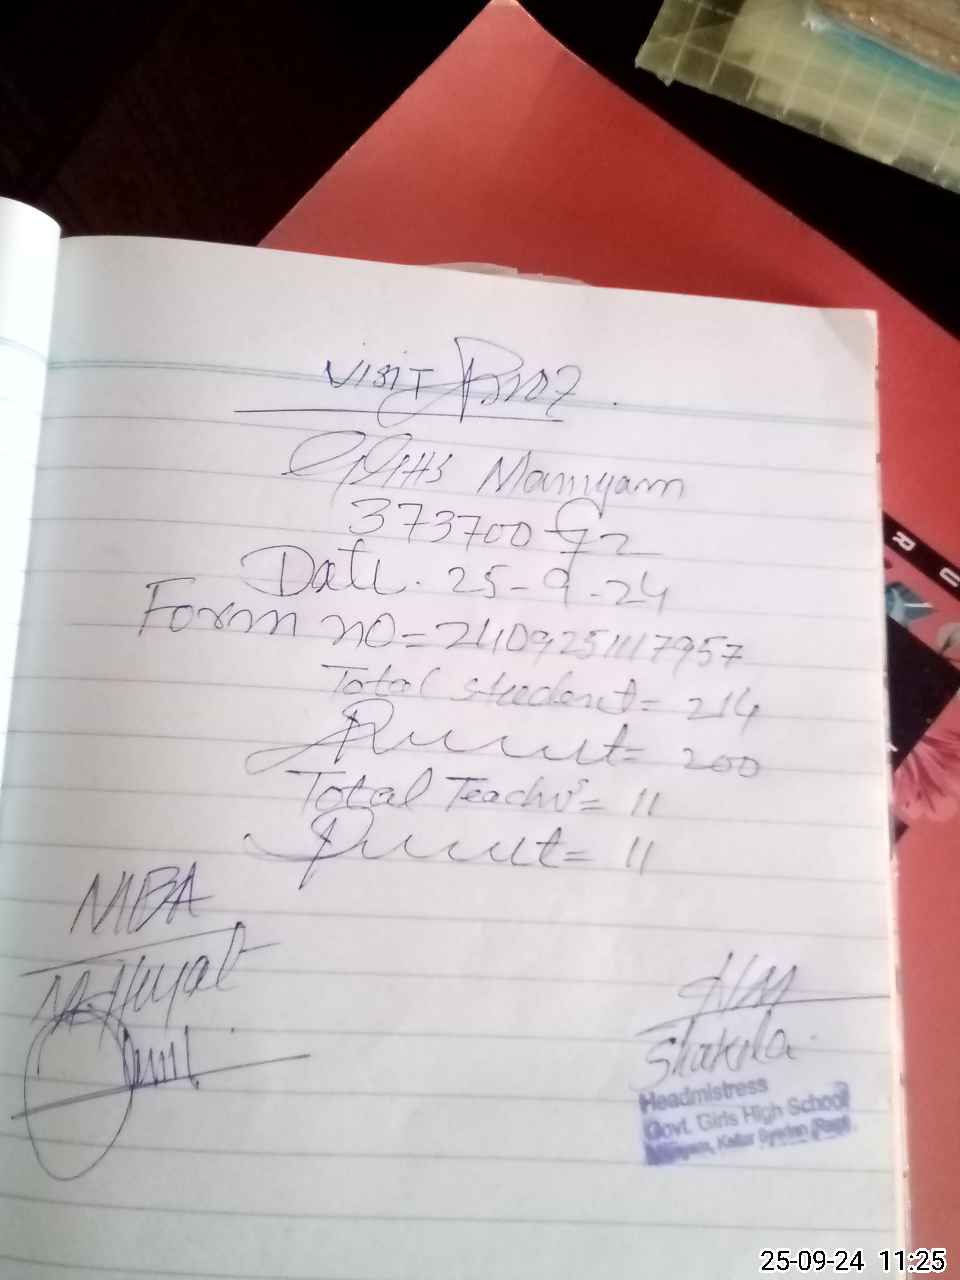 Visit Proof
GGHS Maniyam
37370062
Date. 25-9-24
Form no=2409251117957
Total Student= 214
Present= 200
Total Teachers= 11
Present= 11
MEA
HM
Shakila
Headmistress
Govt. Girls High School
Kallar Syedan (Rwp)
R U
25-09-24 11:25